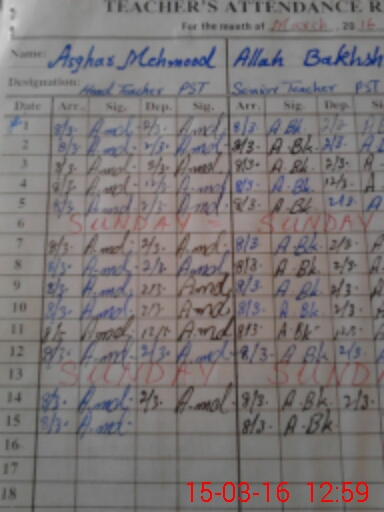 TEACHER'S ATTENDANCE R
For the month of March, 2016
Name: Asghar Mehmood Allah Bakhsh
Designation: Head Teacher PST Senior Teacher PST
Date Arr. Sig. Dep. Sig. Arr. Sig. Dep. S
1 8/3. A.md. 2/3. A.md. 8/3 A.Bk 2/3
2 8/3. A.md. 2/3. A.md. 8/3. A.Bk. 2/3. A
3 8/3. A.md. 2/3. A.md. 8/3. A.Bk. 2/3. A
4 8/3. A.md. 12/3. A.md. 8/3. A.Bk. 12/3. A
5 8/3. A.md. 2/3. A.md. 8/3. A.Bk. 2/3. A
6 SUNDAY - SUNDAY
7 8/3. A.md. 2/3. A.md. 8/3. A.Bk. 2/3. A
8 8/3. A.md. 2/3. A.md. 8/3. A.Bk. 2/3. A
9 8/3. A.md. 2/3. A.md. 8/3. A.Bk. 2/3. A
10 8/3. A.md. 2/3. A.md. 8/3. A.Bk 2/3. A
11 8/3. A.md. A.md 8/3. A.Bk. A
12 8/3. A.md. 2/3. A.md. 8/3. A.Bk 2/3.
13 SUNDAY SUNDAY
14 8/3. A.md. 2/3. A.md. 8/3. A.Bk. 2/3.
15 8/3. A.md. 8/3. A.Bk.
16
17
18
15-03-16 12:59